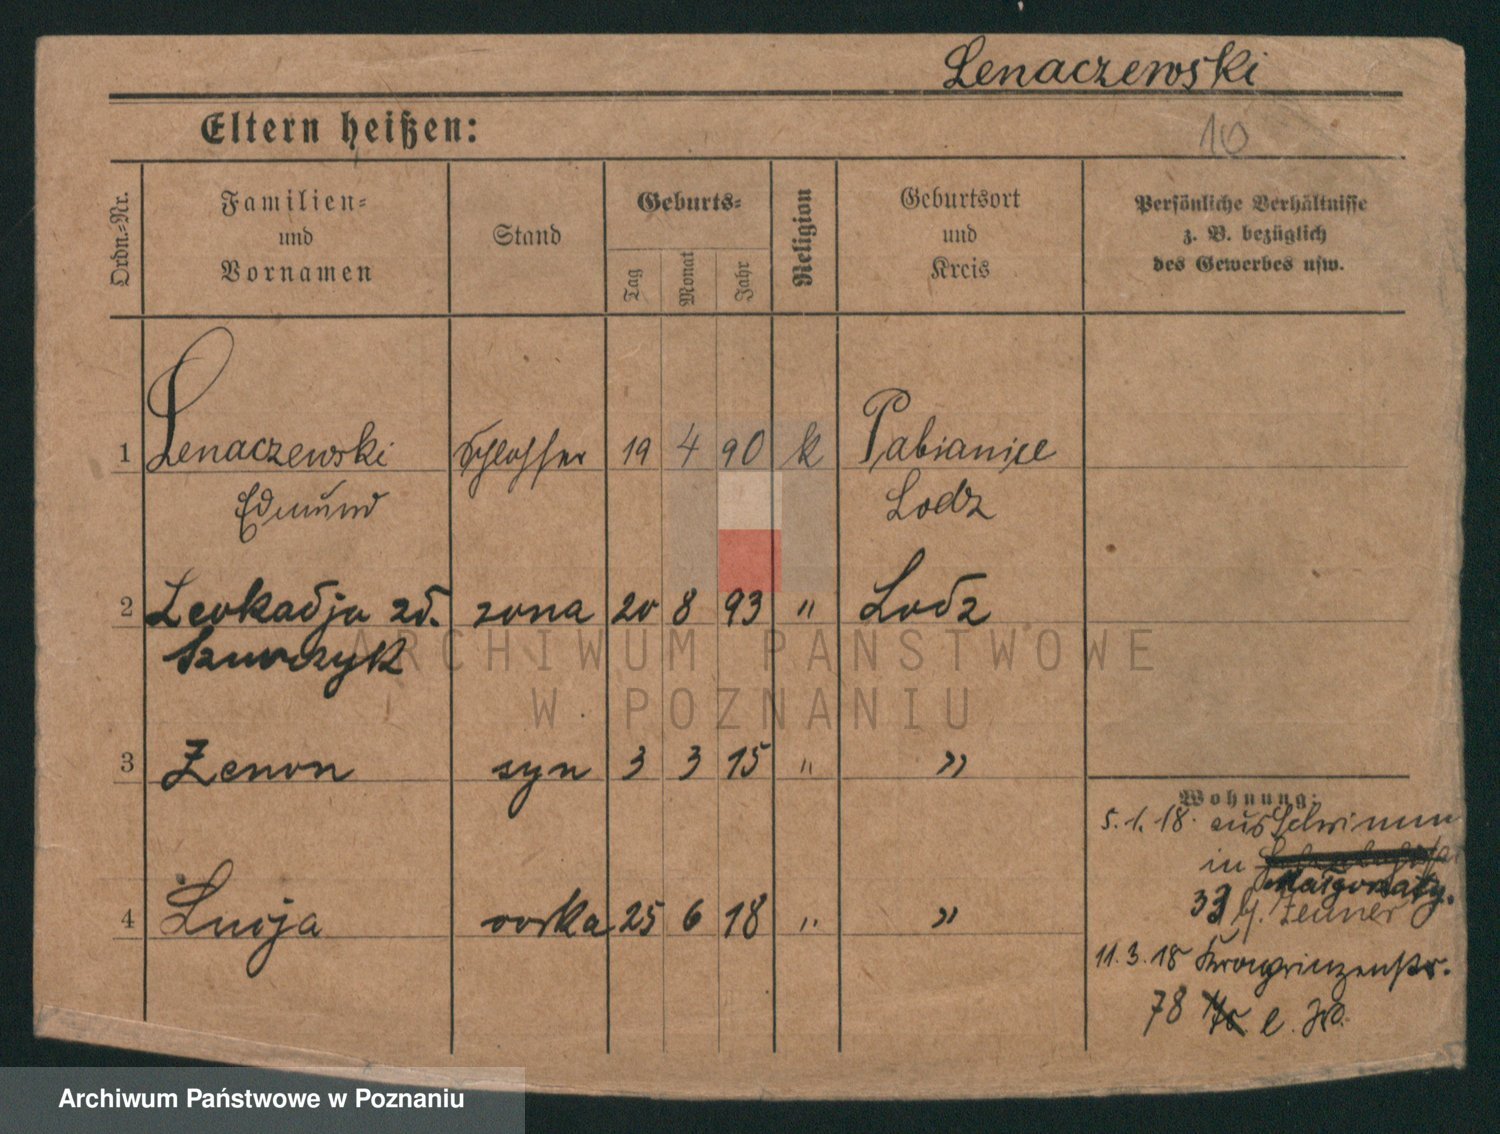 Lenaczewski
10
Eltern heißen:
Ordn.=Nr.
Familien=
und
Vornamen
Stand
Geburts=
Tag
Monat
Jahr
Religion
Geburtsort
und
Kreis
Persönliche Verhältnisse
z. B. bezüglich
des Gewerbes usw.
1 Lenaczewski Schlosser 19 4 90 k Pabianice
Edmund Lodz
2 Leokadja zd. zona 20 8 93 " Lodz
3 Zenon syn 3 3 15 " "
4 Lucja corka 25 6 18 " "
Wohnung:
5.1.18. aus
in
Małgorzaty.
33 Zenner
11.3.18 Kronprinzenstr.
78
ARCHIWUM PAŃSTWOWE
W POZNANIU
Archiwum Państwowe w Poznaniu